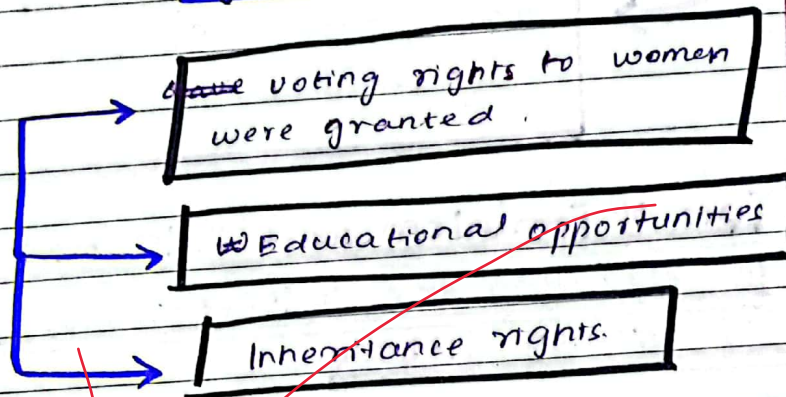 voting rights to women
were granted.
Educational opportunities
Inheritance rights.